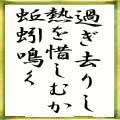 過ぎ去りし
熱を惜しむか
蚯蚓鳴く